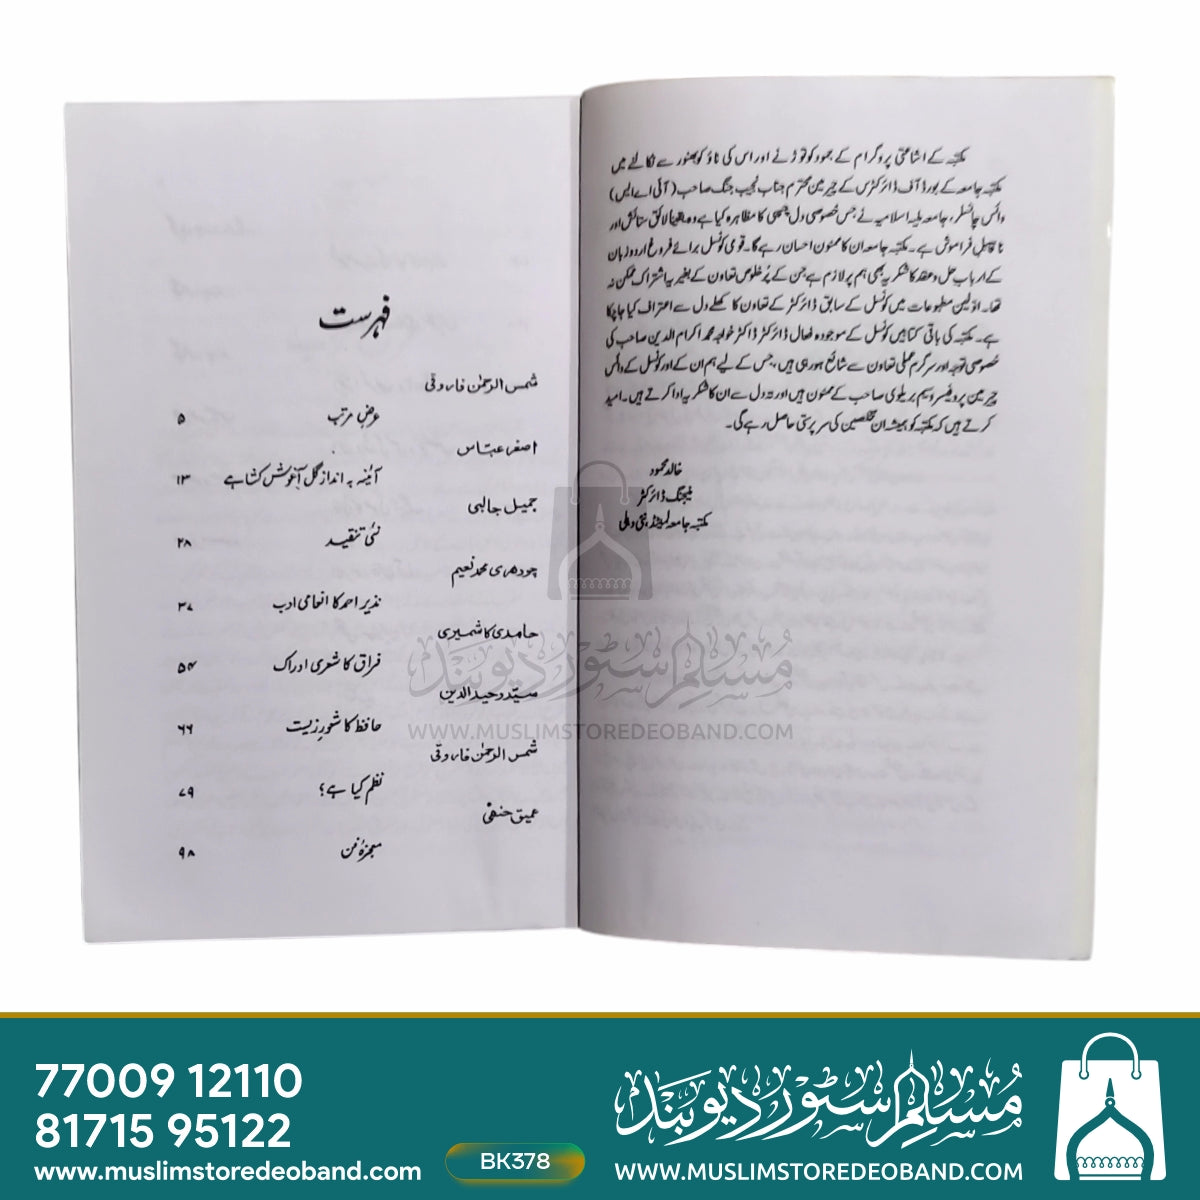 مکتبہ کے اشاعتی پروگرام کے جمود کو توڑنے اور اس کی ناؤ کو بھنور سے نکالنے میں
مکتبہ جامعہ کے بورڈ آف ڈائرکٹرس کے چیرمین محترم جناب نجیب جنگ صاحب (آئی اے ایس)
وائس چانسلر، جامعہ ملیہ اسلامیہ نے جس خصوصی دل چسپی کا مظاہرہ کیا ہے وہ یقیناً لائق ستائش اور
ناقابل فراموش ہے۔ مکتبہ جامعہ ان کا ممنون احسان رہے گا۔ قومی کونسل برائے فروغ اردو زبان
کے ارباب حل و عقد کا شکریہ بھی ہم پر لازم ہے جن کے پُر خلوص تعاون کے بغیر یہ اشتراک ممکن نہ
تھا۔ اولین مطبوعات میں کونسل کے سابق ڈائرکٹر کے تعاون کا کھلے دل سے اعتراف کیا جا چکا
ہے۔ مکتبہ کی باقی کتابیں کونسل کے موجودہ فعال ڈائرکٹر ڈاکٹر خواجہ محمد اکرام الدین صاحب کی
خصوصی توجہ اور سرگرم عملی تعاون سے شائع ہو رہی ہیں، جس کے لیے ہم ان کے اور کونسل کے وائس
چیرمین پروفیسر وسیم بریلوی صاحب کے ممنون ہیں اور تہ دل سے ان کا شکریہ ادا کرتے ہیں۔ امید
کرتے ہیں کہ مکتبہ کو ہمیشہ ان مخلصین کی سرپرستی حاصل رہے گی۔
خالد محمود
منیجنگ ڈائرکٹر
مکتبہ جامعہ لمیٹڈ، نئی دہلی
فہرست
شمس الرحمٰن فاروقی
عرض مرتب ۵
اصغر عباس
آئینہ بہ انداز گل آغوش کشا ہے ۱۳
جمیل جالبی
نئی تنقید ۲۸
چودھری محمد نعیم
نذیر احمد کا انعامی ادب ۳۷
حامدی کاشمیری
فراق کا شعری ادراک ۵۴
سیّد وحید الدین
حافظ کا شعورِ زیست ۶۶
شمس الرحمٰن فاروقی
نظم کیا ہے؟ ۷۹
عمیق حنفی
معجزۂ فن ۹۸
مسلم سٹور دیوبند
WWW.MUSLIMSTOREDEOBAND.COM
77009 12110
81715 95122
www.muslimstoredeoband.com
BK378
مسلم سٹور دیوبند
WWW.MUSLIMSTOREDEOBAND.COM